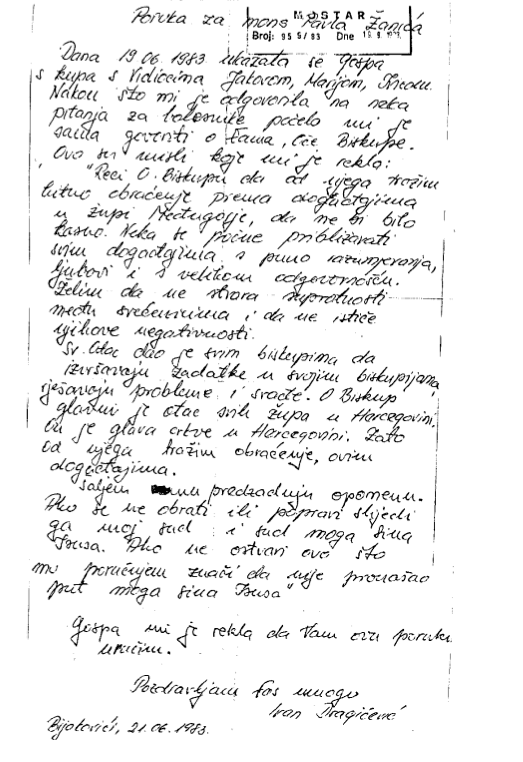 Poruka za mons Pavla Žanića
MOSTAR
Broj: 955/83 Dne
Dana 19.06.1983. ukazata se Gospa
s kupa s Vidiocima Jakovom, Marijom,
Nakon što mi je odgovorila na neka
pitanja za bolesnike počelo mi je
sama govoriti o Vama, Oče Biskupe.
Ovo su misli koje mi je rekla:
"Reci O. Biskupu da od njega tražim
hitno obraćenje prema događajima
u župi Međugorje, da ne bi bilo
kasno. Neka se počne približavati
svim događajima s puno razumjevanja,
ljubovi i s velikom odgovornošću.
Želim da ne stvara suprotnosti
među svećenicima i da ne ističe
njihove negativnosti.
Sv. Otac dao je svim biskupima da
izvršavaju zadatke u svojim biskupijama,
rješavaju probleme i svađe. O Biskup
glavni je otac svih župa u Hercegovini,
On je glava crkve u Hercegovini. Zato
od njega tražim obraćenje, ovim
događajima.
Šaljem mu predzadnju opomenu.
Ako se ne obrati ili popravi slijedi
ga moj sud i sud moga sina
Isusa. Ako ne ostvari ovo što
mu poručujem znači da nije pronašao
put moga sina Isusa"
Gospa mi je rekla da Vam ovu poruku
uručim.
Pozdravljam Vas mnogo
Ivan Dragičević
Bijakovići, 21.06.1983.